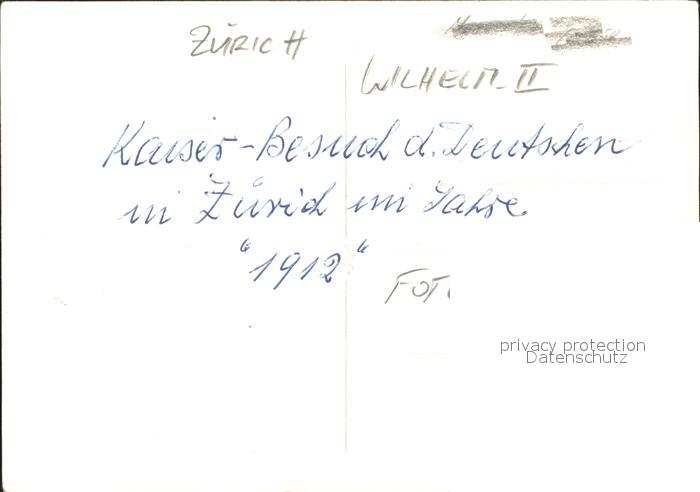 ZÜRICH
WILHELM II
Kaiser-Besuch d. Deutschen
in Zürich im Jahre
"1912"
FOT.
privacy protection
Datenschutz